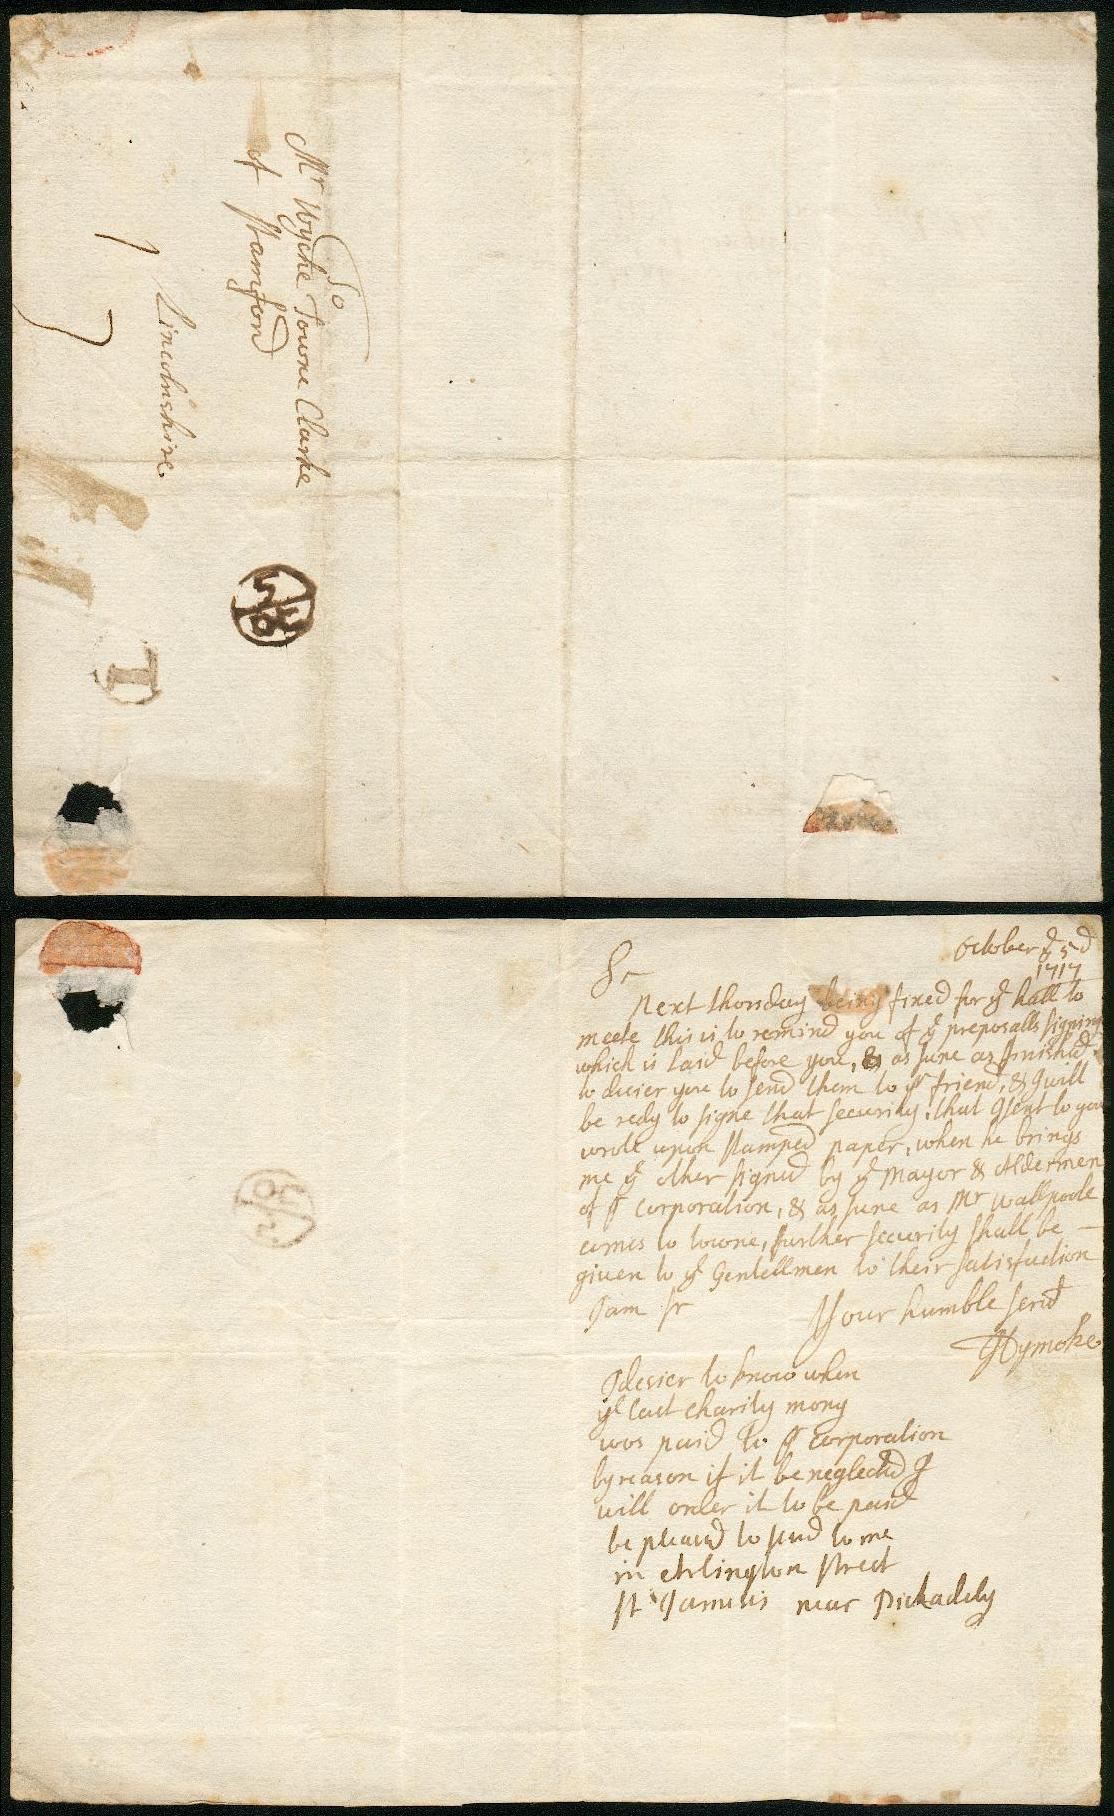 To
Mr Wyche Towne Clarke
of Stamford
Lincolnshire
3
5
OC
I
October ye 5d
1717
Sr
Next thorsday being fixed for ye hall to
meete this is to remind you of ye preposalls signing
which is laid before you, & as sune as finishd,
to desier you to send them to yr friend, & I will
be redy to signe that security, that I sent to you
wrote upon stamped paper, when he brings
me ye other signed by ye Mayor & Aldermen
of ye corporation, & as sune as Mr Wallpoole
cumes to towne, further security shall be
given to ye Gentellmen to their satisfaction
I am Sr
Your humble servt
Dymoke
I desier to know when
ye last charity mony
was paid to ye corporation
by reason if it be neglectd I
will order it to be paid
be pleasd to send to me
in Arlington street
St Jamesis near Pickadily
OC
5